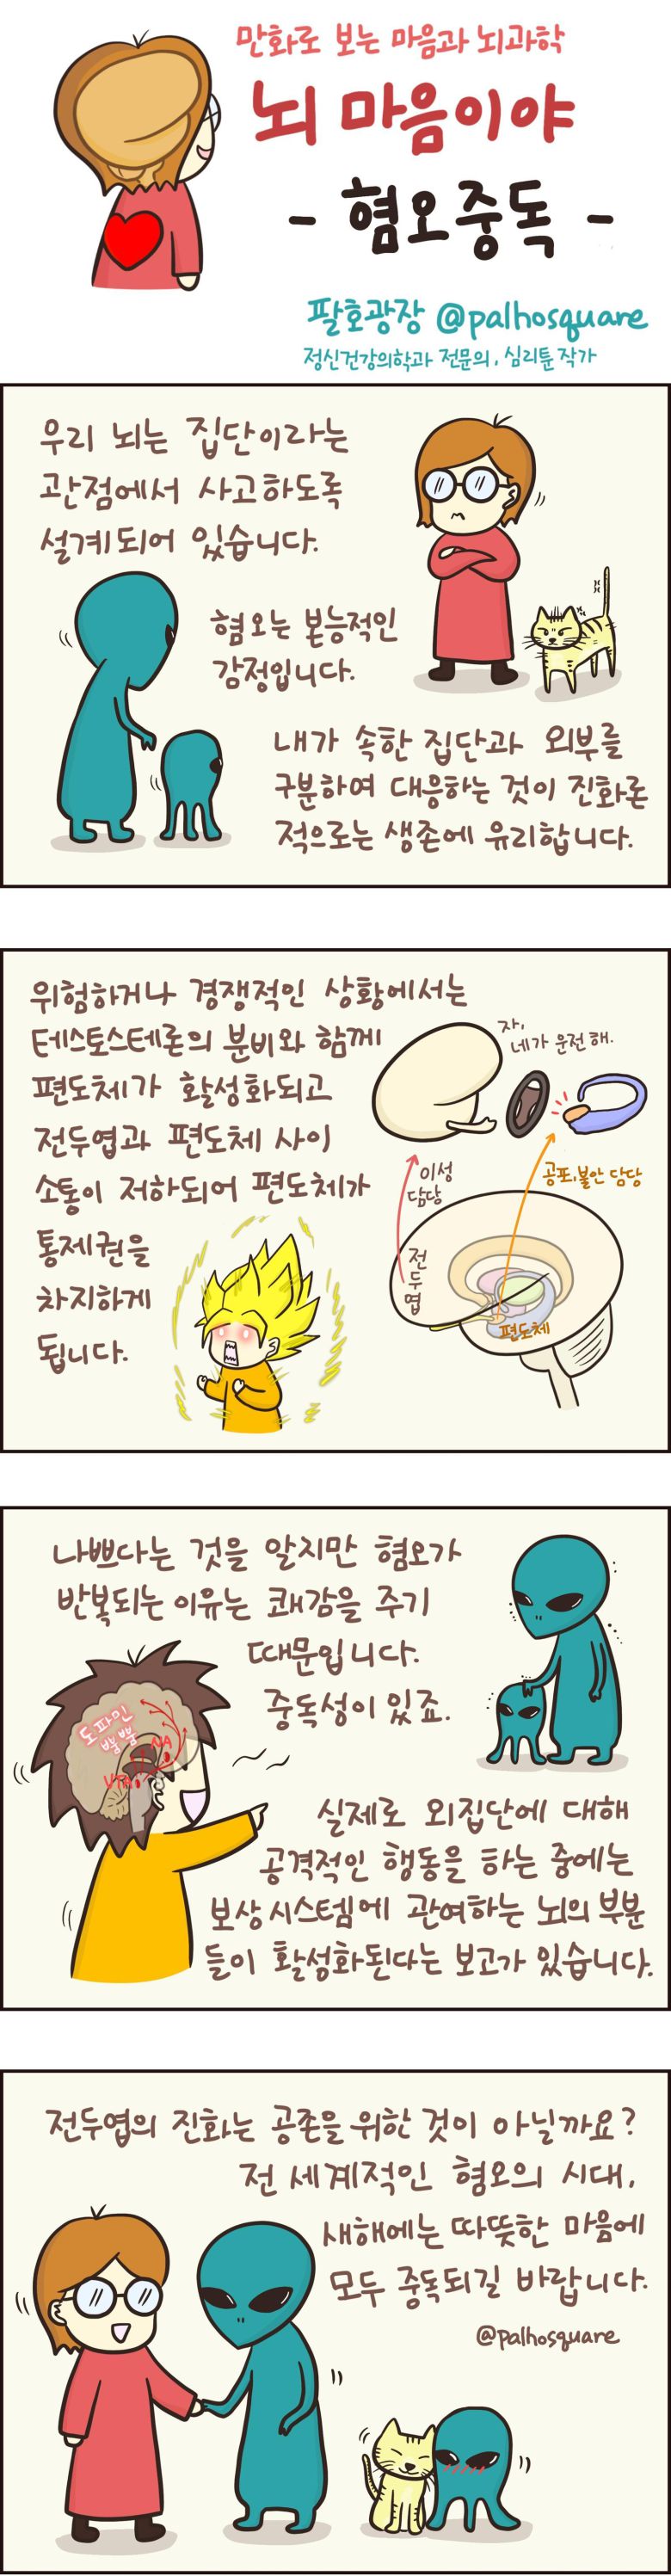 만화로 보는 마음과 뇌과학
뇌 마음이야
- 혐오중독 -
팔호광장 @palhosquare
정신건강의학과 전문의, 심리툰 작가
우리 뇌는 집단이라는
관점에서 사고하도록
설계되어 있습니다.
혐오는 본능적인
감정입니다.
내가 속한 집단과 외부를
구분하여 대응하는 것이 진화론
적으로는 생존에 유리합니다.
위험하거나 경쟁적인 상황에서는
테스토스테론의 분비와 함께
편도체가 활성화되고
전두엽과 편도체 사이
소통이 저하되어 편도체가
통제권을
차지하게
됩니다.
자,
네가 운전해.
이성
담당
공포,불안 담당
전두엽
편도체
나쁘다는 것을 알지만 혐오가
반복되는 이유는 쾌감을 주기
때문입니다.
중독성이 있죠.
도파민
뿜뿜
NA
VTA
실제로 외집단에 대해
공격적인 행동을 하는 중에는
보상시스템에 관여하는 뇌의 부분
들이 활성화된다는 보고가 있습니다.
전두엽의 진화는 공존을 위한 것이 아닐까요?
전 세계적인 혐오의 시대,
새해에는 따뜻한 마음에
모두 중독되길 바랍니다.
@palhosquare